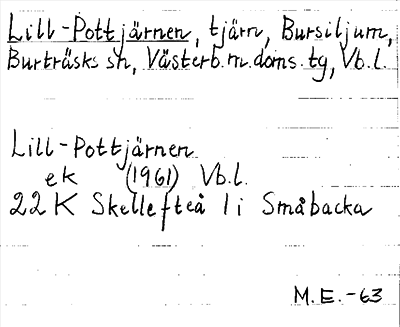 Lill-Pottjärnen, tjärn, Bursiljum,
Burträsks sn, Västerb.m.doms.tg, Vb.l.
Lill-Pottjärnen
ek (1961) Vb.l.
22K Skellefteå 1i Småbacka
M.E.-63